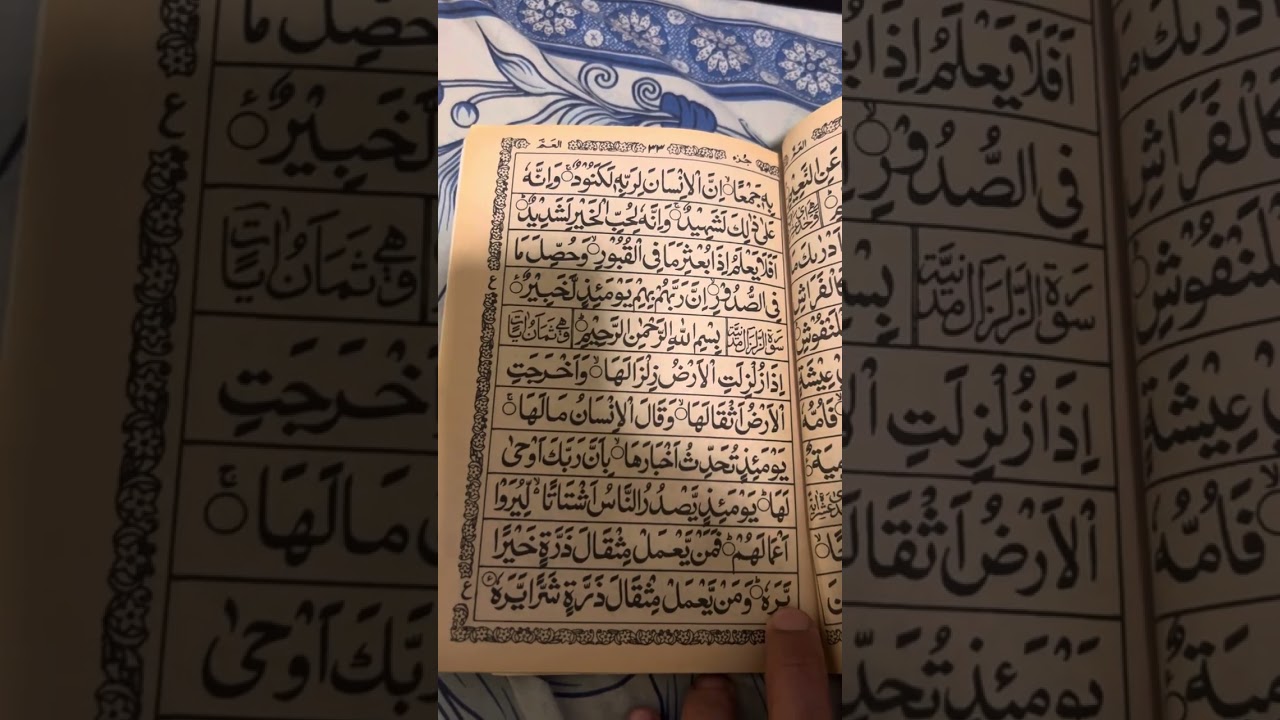 جُزء ٣٣ العـمّ
بِهٖ جَمْعًا ۙ اِنَّ الْاِنْسَانَ لِرَبِّهٖ لَكَنُوْدٌ ۚ وَاِنَّهٗ
عَلٰى ذٰلِكَ لَشَهِيْدٌ ۚ وَاِنَّهٗ لِحُبِّ الْخَيْرِ لَشَدِيْدٌ ؕ
اَفَلَا يَعْلَمُ اِذَا بُعْثِرَ مَا فِى الْقُبُوْرِ ۙ وَحُصِّلَ مَا
فِى الصُّدُوْرِ ۙ اِنَّ رَبَّهُمْ بِهِمْ يَوْمَئِذٍ لَّخَبِيْرٌ ۠ ع
سُوْرَةُ الزِّلْزَالِ مَدَنِيَّةٌ بِسْمِ اللهِ الرَّحْمٰنِ الرَّحِيْمِ وَهِىَ ثَمَانُ اٰيَاتٍ
اِذَا زُلْزِلَتِ الْاَرْضُ زِلْزَالَهَا ۙ وَاَخْرَجَتِ
الْاَرْضُ اَثْقَالَهَا ۙ وَقَالَ الْاِنْسَانُ مَالَهَا ۚ
يَوْمَئِذٍ تُحَدِّثُ اَخْبَارَهَا ۙ بِاَنَّ رَبَّكَ اَوْحٰى
لَهَا ؕ يَوْمَئِذٍ يَّصْدُرُ النَّاسُ اَشْتَاتًا ۙ لِّيُرَوْا
اَعْمَالَهُمْ ؕ فَمَنْ يَّعْمَلْ مِثْقَالَ ذَرَّةٍ خَيْرًا
يَّرَهٗ ؕ وَمَنْ يَّعْمَلْ مِثْقَالَ ذَرَّةٍ شَرًّا يَّرَهٗ ع